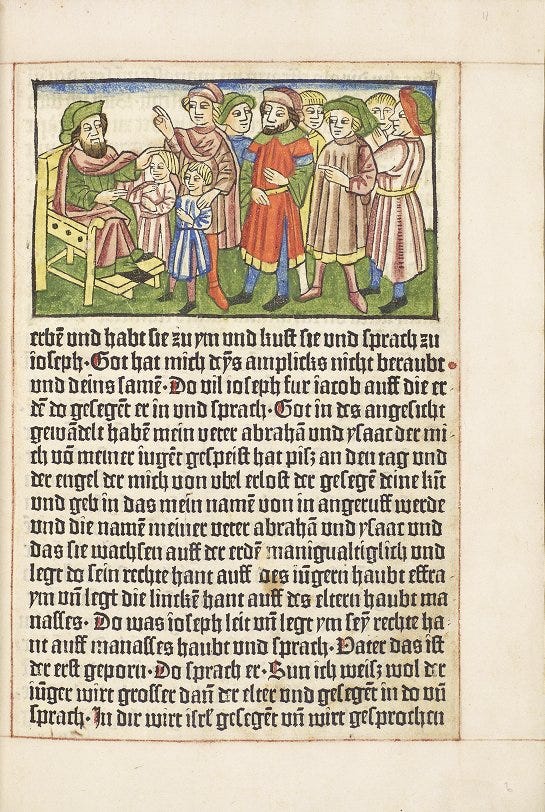 erbẽ vnd habt sie zu ym vnd kust sie vnd sprach zu
ioseph· Got hat mich dys amplicks nicht beraubt
vnd deins samẽ· Do vil ioseph fur iacob auff die er
dẽ do gesegẽt er in vnd sprach· Got in des angesicht
gewãdelt habẽ mein veter abrahã vnd ysaac der mi
ch võ meiner iugẽt gespeist hat pisz an den tag vnd
der engel der mich von vbel erlost der gesegẽ deine kĩt
vnd geb in das mein namẽ von in angeruff werde
vnd die namẽ meiner veter abrahã vnd ysaac vnd
das sie wachsen auff der erdẽ manigualtiglich vnd
legt do sein rechte hant auff des iũgern haubt effra
ym vñ legt die linckẽ hant auff des eltern haubt ma
nasses· Do was ioseph leit vñ legt ym sey̅ rechte ha
nt auff manasses haubt vnd sprach· Vater das ist
der erst geporn· Do sprach er· Sun ich weisz wol der
iũger wirt grosser dañ der elter vnd gesegẽt in do vñ
sprach· In dir wirt isrl̃ gesegẽt vñ wirt gesprochen